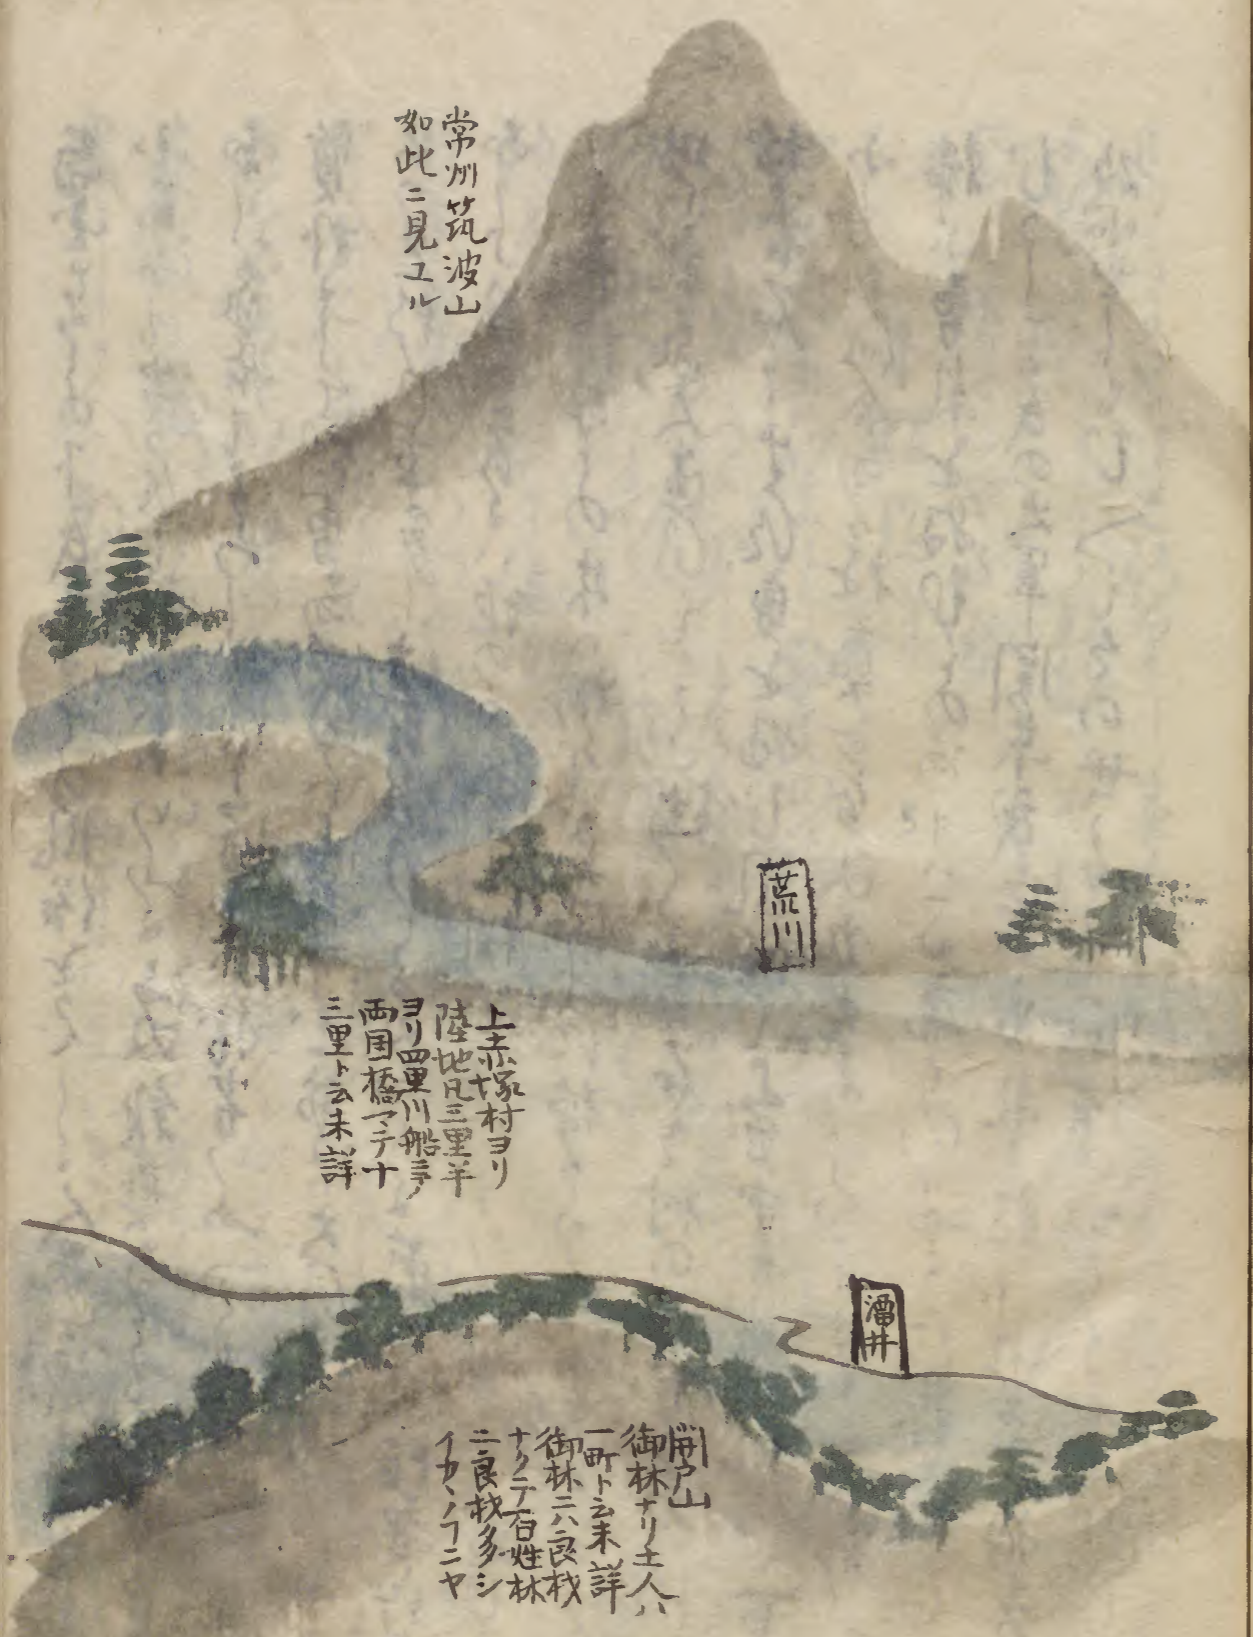 常州筑波山
如此ニ見ユル
荒川
上赤塚村ヨリ
陸地凡三里半
ヨリ四里川船ニテ
両国橋マテ十
三里ト云未詳
溜井
御林ナリ土人ハ
一町ト云未詳
御林ニハ良材
ナクテ百姓林
ニ良材多シ
イカヽノコニヤ